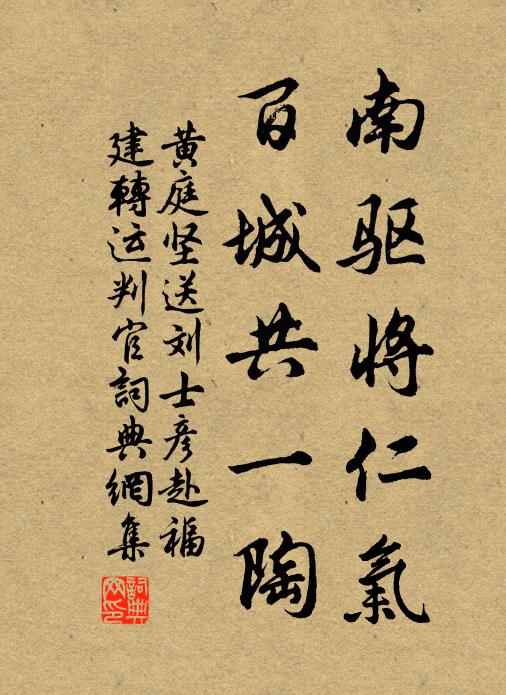 南驱将仁氣
百城共一陶
黄庭坚送刘士彦赴福
建轉运判官詞典網集
詞典网印